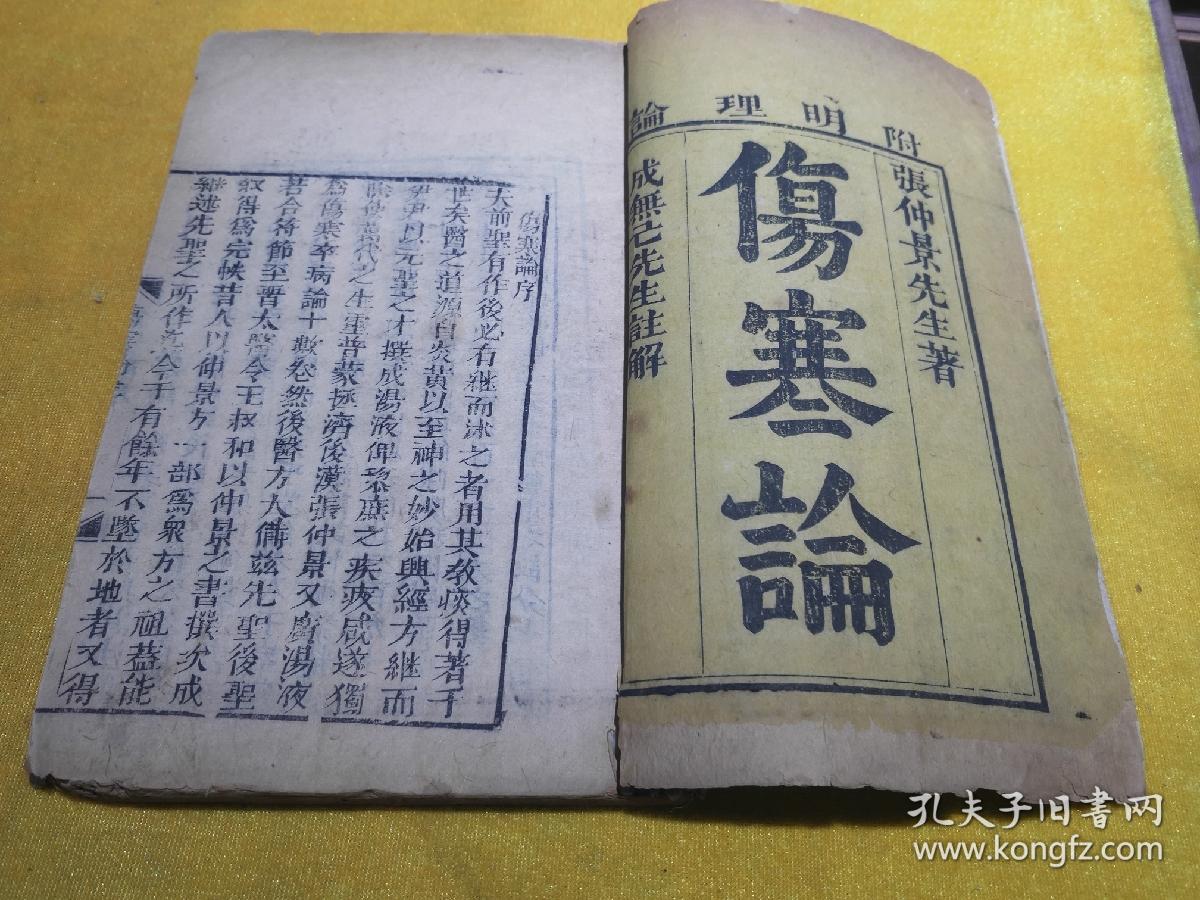 附明理論
張仲景先生著
傷寒論
成無己先生註解
傷寒論序
夫前聖有作後必有継而述之者用其教痰得著于
世矣醫之道源自炎黄以至神之妙始興經方継而
伊尹以元聖之才撰成湯液俾黎庶之疾疚咸遂
除使萬代之生靈普蒙拯濟後漢張仲景又廣湯液
為傷寒卒病論十數卷然後醫方大備兹先聖後聖
若合符節至晋太醫令王叔和以仲景之書撰次成
叙得爲完帙昔人以仲景方一部爲衆方之祖葢能
継述先聖之所作迄今千有餘年不墜於地者又得
孔夫子旧书网
www.kongfz.com